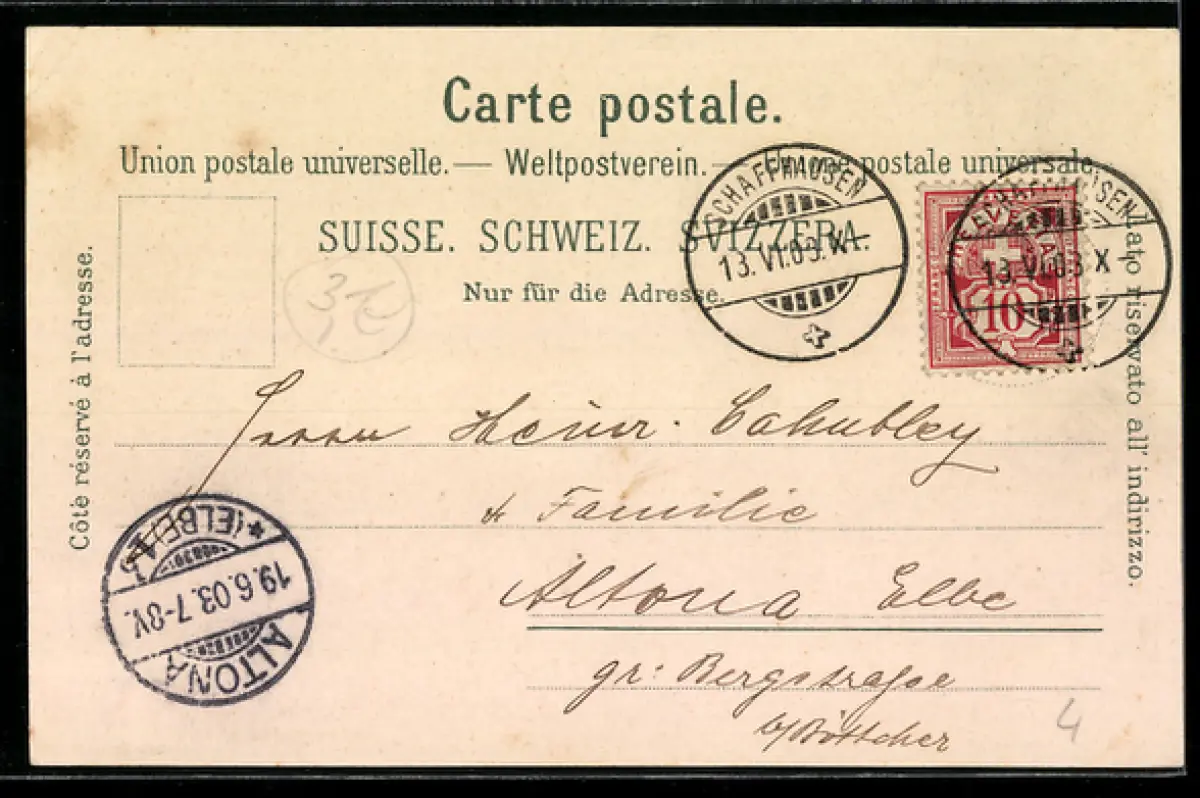 Carte postale.
Union postale universelle. — Weltpostverein. — Unione postale universale.
SUISSE. SCHWEIZ. SVIZZERA.
Nur für die Adresse.
Côté réservé à l'adresse.
Lato riservato all' indirizzo.
SCHAFFHAUSEN
13.VI.03.X
SCHAFFHAUSEN
13.VI.03.X
HELVETIA
FRANCO
10
Familie
Altona Elbe
gr: Bergstrasse
b/Böttcher
ALTONA
19.6.03.7-8V.
* (ELBE)
4